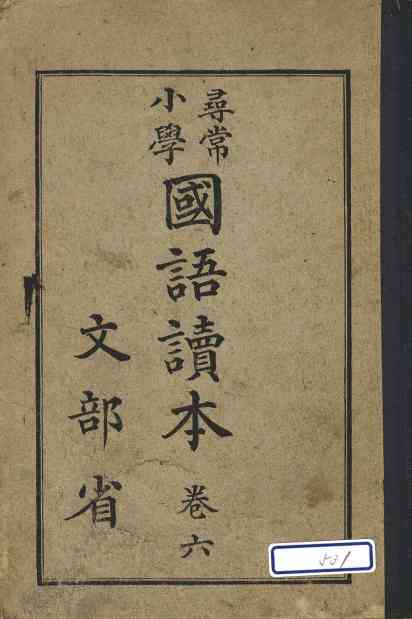 尋常
小學
國語讀本 卷六
文部省
531